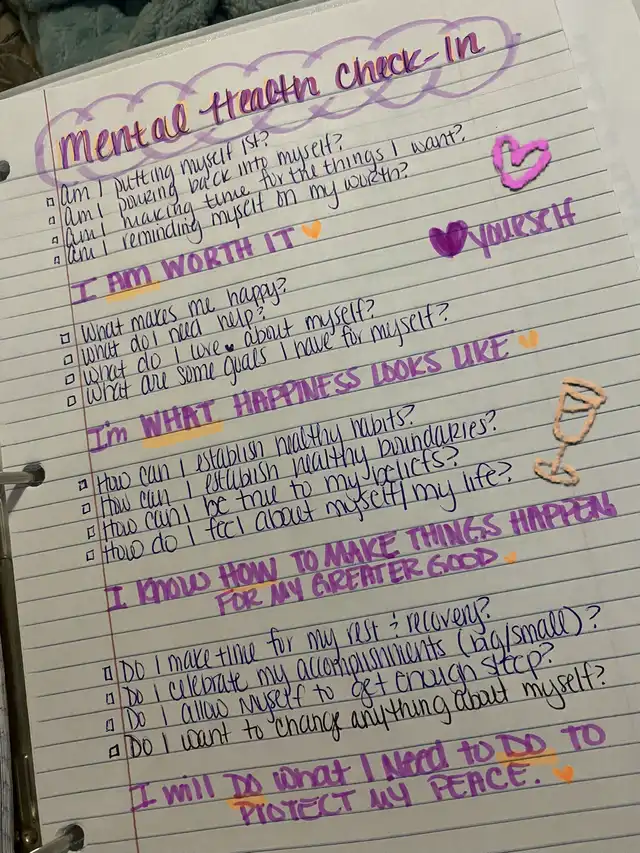 Mental Health Check-In
Am I putting myself 1st?
Am I pouring back into myself?
Am I making time for the things I want?
Am I reminding myself on my worth?
I AM WORTH IT
yourself
What makes me happy?
What do I need help?
What do I love about myself?
What are some goals I have for myself?
I'm WHAT HAPPINESS LOOKS LIKE
How can I establish healthy habits?
How can I establish healthy boundaries?
How can I be true to my beliefs?
How do I feel about myself/my life?
I KNOW HOW TO MAKE THINGS HAPPEN
FOR MY GREATER GOOD
Do I make time for my rest & recovery?
Do I celebrate my accomplishments (big/small)?
Do I allow myself to get enough sleep?
Do I want to change anything about myself?
I will DO what I Need to DO TO
PROTECT MY PEACE.